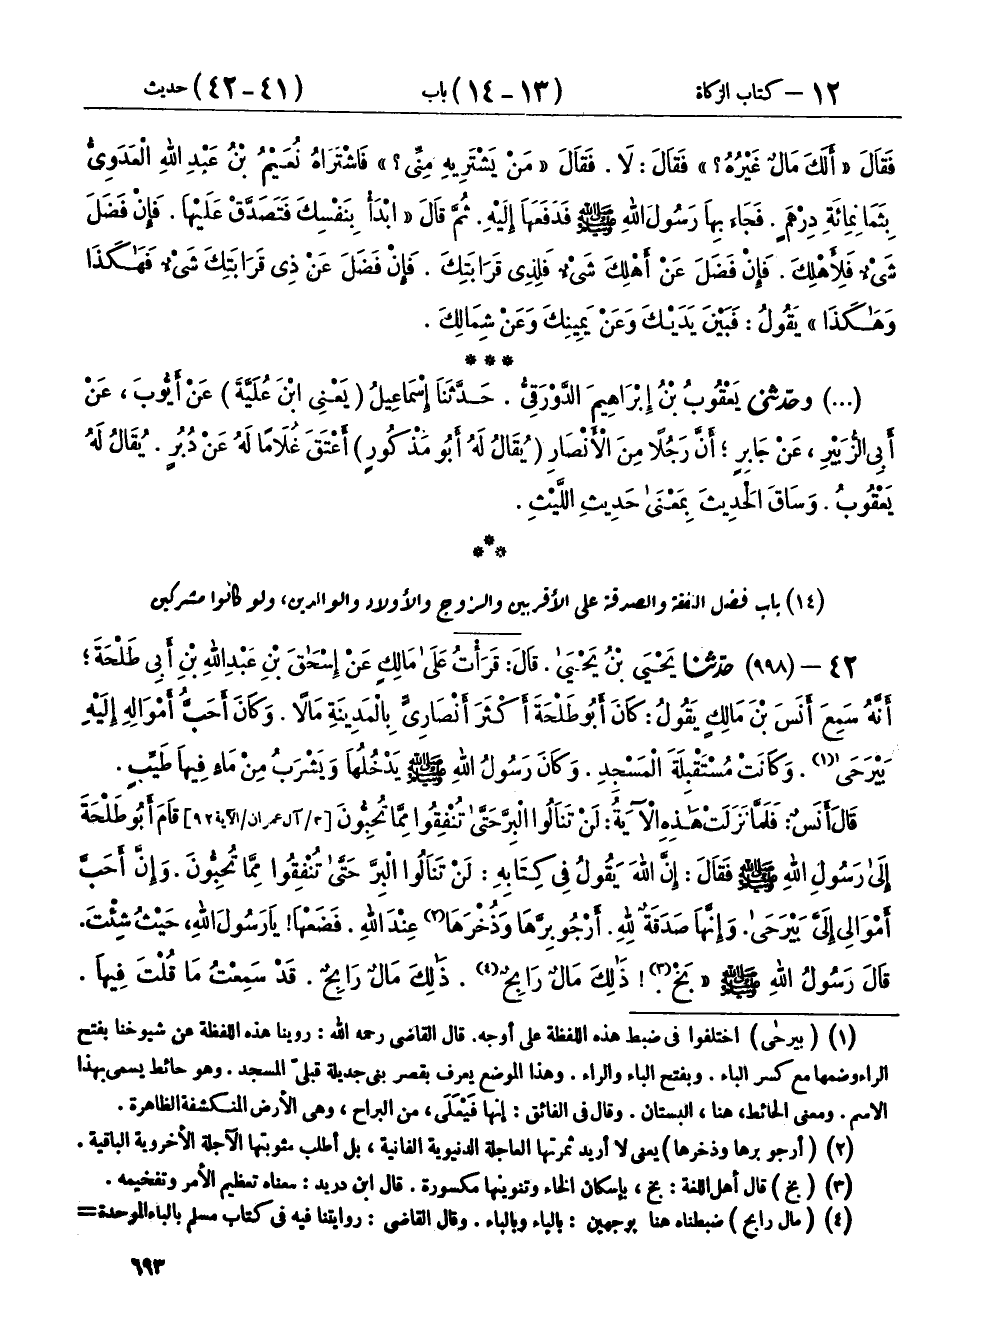 ١٢ – كتاب الزكاة (١٣-١٤) باب (٤١-٤٢) حديث
فَقَالَ « أَلَكَ مَالٌ غَيْرُهُ؟ » فَقَالَ : لَا . فَقَالَ « مَنْ يَشْتَرِيهِ مِنِّي؟ » فَاشْتَرَاهُ نُعَيْمُ بْنُ عَبْدِ اللهِ الْعَدَوِىُّ
بِثَمَانِمائَةِ دِرْهَمٍ . فَجَاءَ بِهَا رَسُولَ اللهِ ﷺ فَدَفَعَهَا إِلَيْهِ. ثُمَّ قَالَ « ابْدَأْ بِنَفْسِكَ فَتَصَدَّقْ عَلَيْهَا . فَإِنْ فَضَلَ
شَىْءٌ فَلِأَهْلِكَ . فَإِنْ فَضَلَ عَنْ أَهْلِكَ شَىْءٌ فَلِذِى قَرَابَتِكَ . فَإِنْ فَضَلَ عَنْ ذِى قَرَابَتِكَ شَىْءٌ فَهٰكَذَا
وَهٰكَذَا » يَقُولُ : فَبَيْنَ يَدَيْكَ وَعَنْ يَمِينِكَ وَعَنْ شِمَالِكَ .
* * *
(...) وحَدَّثَنِى يَعْقُوبُ بْنُ إِبْرَاهِيمَ الدَّوْرَقِىُّ . حَدَّثَنَا إِسْمَاعِيلُ ( يَعْنِى ابْنَ عُلَيَّةَ ) عَنْ أَيُّوبَ ، عَنْ
أَبِى الزُّبَيْرِ ، عَنْ جَابِرٍ ؛ أَنَّ رَجُلًا مِنَ الْأَنْصَارِ ( يُقَالُ لَهُ أَبُو مَذْكُورٍ ) أَعْتَقَ غُلَامًا لَهُ عَنْ دُبُرٍ . يُقَالُ لَهُ
يَعْقُوبُ . وَسَاقَ الْحَدِيثَ بِمَعْنَىٰ حَدِيثِ اللَّيْثِ .
* * *
(١٤) باب فضل النفقة والصدقة على الأقربين والزوج والأولاد والوالدين، ولو كانوا مشركين
٤٢ – (٩٩٨) حَدَّثَنَا يَحْيَىٰ بْنُ يَحْيَىٰ . قَالَ: قَرَأْتُ عَلَىٰ مَالِكٍ عَنْ إِسْحَٰقَ بْنِ عَبْدِ اللهِ بْنِ أَبِى طَلْحَةَ ؛
أَنَّهُ سَمِعَ أَنَسَ بْنَ مَالِكٍ يَقُولُ : كَانَ أَبُو طَلْحَةَ أَكْثَرَ أَنْصَارِىٍّ بِالْمَدِينَةِ مَالًا . وَكَانَ أَحَبُّ أَمْوَالِهِ إِلَيْهِ
بَيْرَحَىٰ(١) . وَكَانَتْ مُسْتَقْبِلَةَ الْمَسْجِدِ . وَكَانَ رَسُولُ اللهِ ﷺ يَدْخُلُهَا وَيَشْرَبُ مِنْ مَاءٍ فِيهَا طَيِّبٍ .
قَالَ أَنَسٌ: فَلَمَّا نَزَلَتْ هَٰذِهِ الْآيَةُ: لَنْ تَنَالُوا الْبِرَّ حَتَّىٰ تُنْفِقُوا مِمَّا تُحِبُّونَ [٣/آل عمران/الآية ٩٢] قَامَ أَبُو طَلْحَةَ
إِلَىٰ رَسُولِ اللهِ ﷺ فَقَالَ : إِنَّ اللهَ يَقُولُ فِى كِتَابِهِ : لَنْ تَنَالُوا الْبِرَّ حَتَّىٰ تُنْفِقُوا مِمَّا تُحِبُّونَ . وَإِنَّ أَحَبَّ
أَمْوَالِى إِلَىَّ بَيْرَحَىٰ. وَإِنَّهَا صَدَقَةٌ لِلهِ. أَرْجُو بِرَّهَا وَذُخْرَهَا(٢) عِنْدَ اللهِ . فَضَعْهَا! يَا رَسُولَ اللهِ، حَيْثُ شِئْتَ.
قَالَ رَسُولُ اللهِ ﷺ « بَخْ(٣) ! ذَٰلِكَ مَالٌ رَابِحٌ(٤) . ذَٰلِكَ مَالٌ رَابِحٌ . قَدْ سَمِعْتُ مَا قُلْتَ فِيهَا .
(١) ( بيرحٰى ) اختلفوا فى ضبط هذه اللفظة على أوجه. قال القاضى رحمه الله : روينا هذه اللفظة عن شيوخنا بفتح
الراء وضمها مع كسر الباء . وبفتح الباء والراء . وهذا الموضع يعرف بقصر بنى جديلة قبلىّ المسجد . وهو حائط يسمى بهذا
الاسم . ومعنى الحائط، هنا ، البستان . وقال فى الفائق : إنها فَيْعَلَى ، من البراح ، وهى الأرض المنكشفة الظاهرة .
(٢) ( أرجو برها وذخرها ) يعنى لا أريد ثمرتها العاجلة الدنيوية الفانية ، بل أطلب مثوبتها الآجلة الأخروية الباقية .
(٣) ( بخ ) قال أهل اللغة : بخ ، بإسكان الخاء وتنوينها مكسورة . قال ابن دريد : معناه تعظيم الأمر وتفخيمه .
(٤) ( مال رابح ) ضبطناه هنا بوجهين : بالياء وبالباء . وقال القاضى : روايتنا فيه فى كتاب مسلم بالباء الموحدة=
٦٩٣